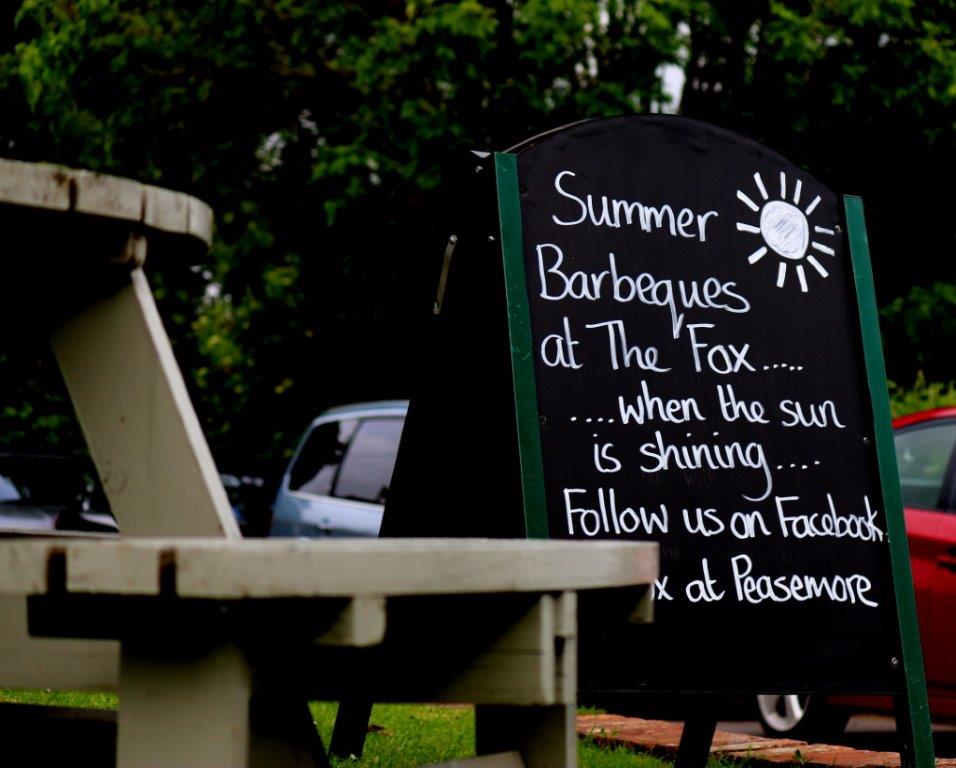 Summer
Barbeques
at The Fox.....
....when the sun
is shining....
Follow us on Facebook.
x at Peasemore